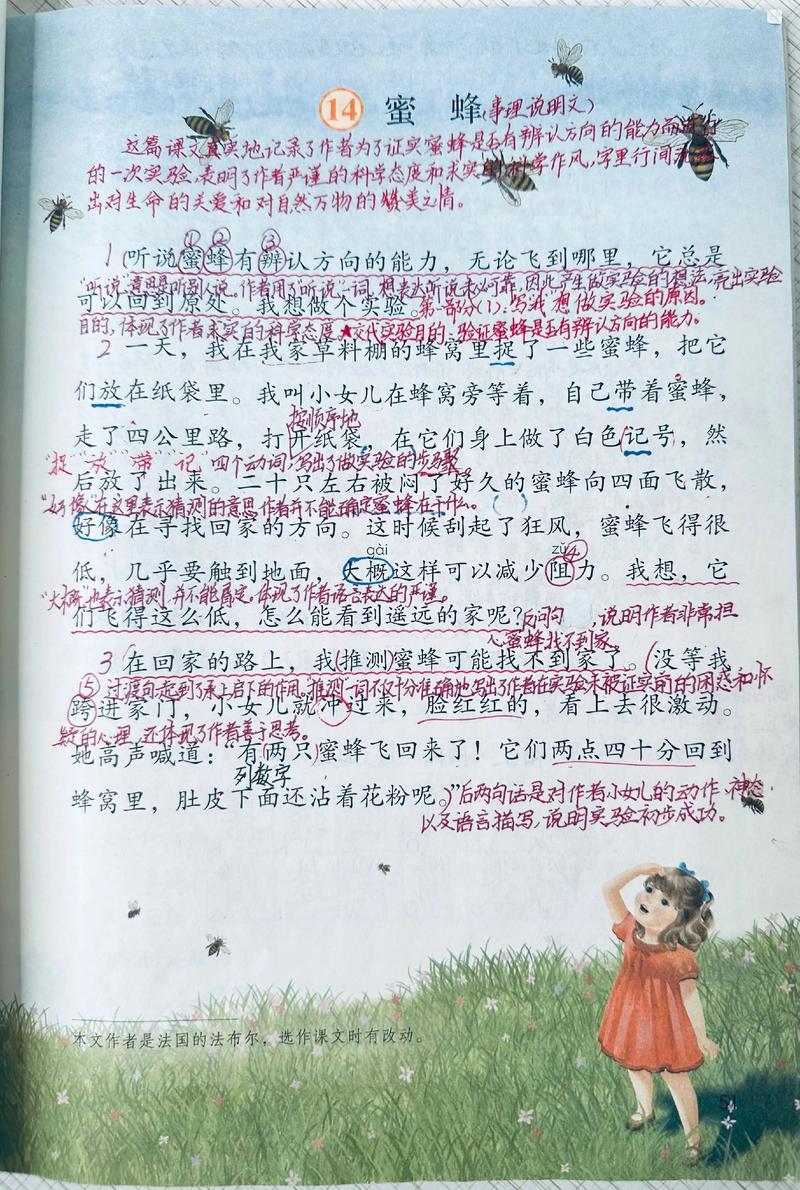 14 蜜 蜂(事理说明文)
这篇课文真实地记录了作者为了证实蜜蜂是否有辨认方向的能力而进行
的一次实验,表明了作者严谨的科学态度和求实的科学作风,字里行间流
出对生命的关爱和对自然万物的赞美之情。
① ② ③
1(听说蜜蜂有辨认方向的能力,无论飞到哪里,它总是
"听说"意思是听别人说。作者用了"听说"一词,想表达听说未必可靠,因此产生做实验的想法,亮出实验
可以回到原处。我想做个实验。第一部分(1):写我想做实验的原因。
目的,体现了作者求实的科学态度。★交代实验目的,验证蜜蜂是否有辨认方向的能力。
2 一天,我在我家草料棚的蜂窝里捉了一些蜜蜂,把它
们放在纸袋里。我叫小女儿在蜂窝旁等着,自己带着蜜蜂,
按顺序地
走了四公里路,打开纸袋,在它们身上做了白色(记号,然
"捉""放""带""记"四个动词,写出了做实验的步骤。
后放了出来。二十只左右被闷了好久的蜜蜂向四面飞散,
"好像"在这里表示猜测的意思,作者并不能确定蜜蜂在干什么。( )
好像在寻找回家的方向。这时候刮起了狂风,蜜蜂飞得很
gài zǔ ④
低,几乎要触到地面,大概这样可以减少阻力。我想,它
"大概"也表示猜测,并不能肯定,体现了作者语言表达的严谨。
们飞得这么低,怎么能看到遥远的家呢?反问句,说明作者非常担
心蜜蜂找不到家
3 在回家的路上,我(推测)蜜蜂可能找不到家了。(没等我
⑤过渡句,起到了承上启下的作用。推测一词不仅十分准确地写出了作者在实验未被证实前的困惑和怀
跨进家门,小女儿就冲过来,脸红红的,看上去很激动。
疑的心理,还体现了作者善于思考。
她高声喊道:"有(两只)蜜蜂飞回来了!它们两点四十分回到
列数字
蜂窝里,肚皮下面还沾着花粉呢。)"后两句话是对作者小女儿的动作、神态
以及语言描写,说明实验初步成功。
本文作者是法国的法布尔,选作课文时有改动。
51